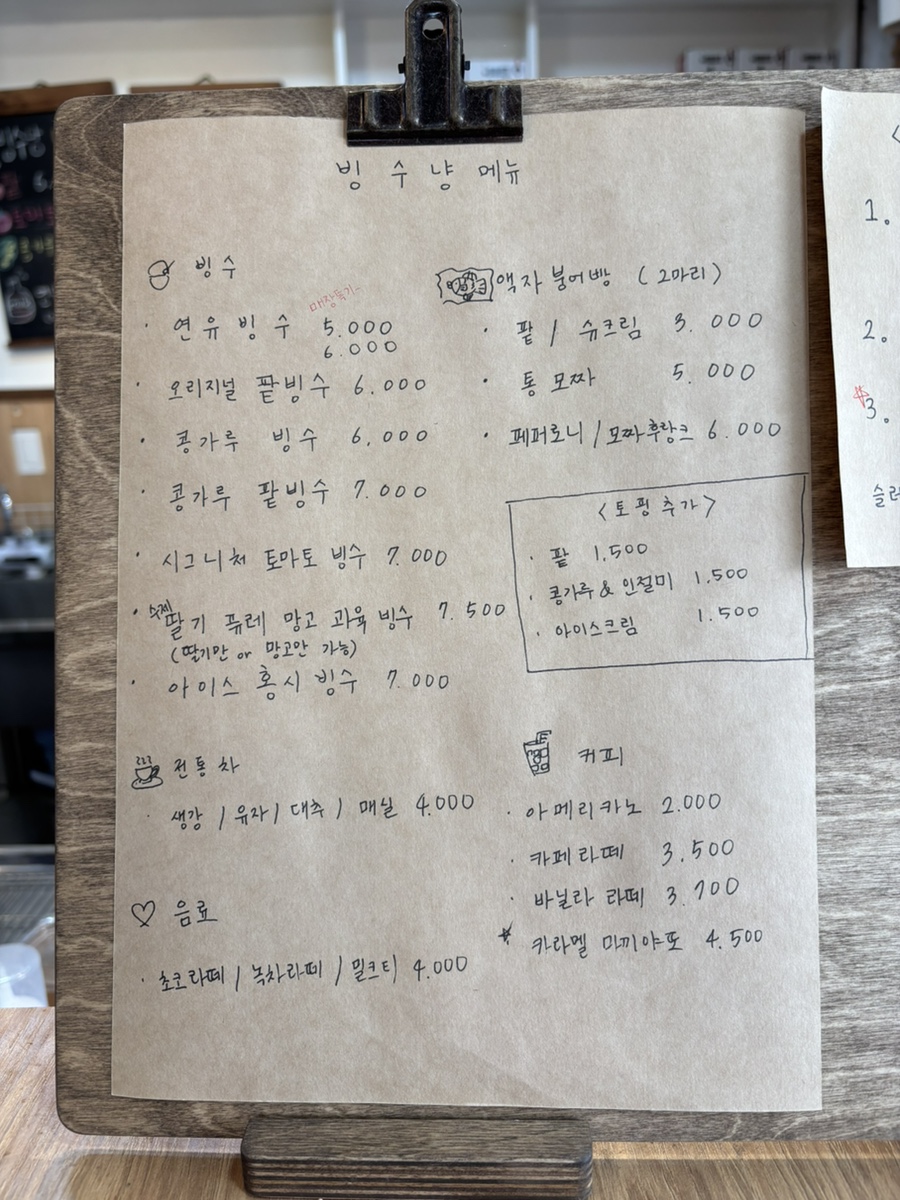 빙수냥 메뉴
빙수
매장특가~
연유빙수 5.000
6.000
오리지널 팥빙수 6.000
콩가루 빙수 6,000
콩가루 팥빙수 7.000
시그니처 토마토 빙수 7.000
수제 딸기 퓨레 망고 과육 빙수 7.500
(딸기만 or 망고만 가능)
아이스 홍시 빙수 7.000
전통차
생강 / 유자 / 대추 / 매실 4.000
음료
초코라떼 / 녹차라떼 / 밀크티 4.000
액자 붕어빵 (2마리)
팥 / 슈크림 3.000
통모짜 5.000
페퍼로니 / 모짜후랑크 6.000
<토핑추가>
팥 1.500
콩가루 & 인절미 1.500
아이스크림 1.500
커피
아메리카노 2.000
카페라떼 3.500
바닐라 라떼 3.700
카라멜 마끼야또 4.500
1.
2.
3.